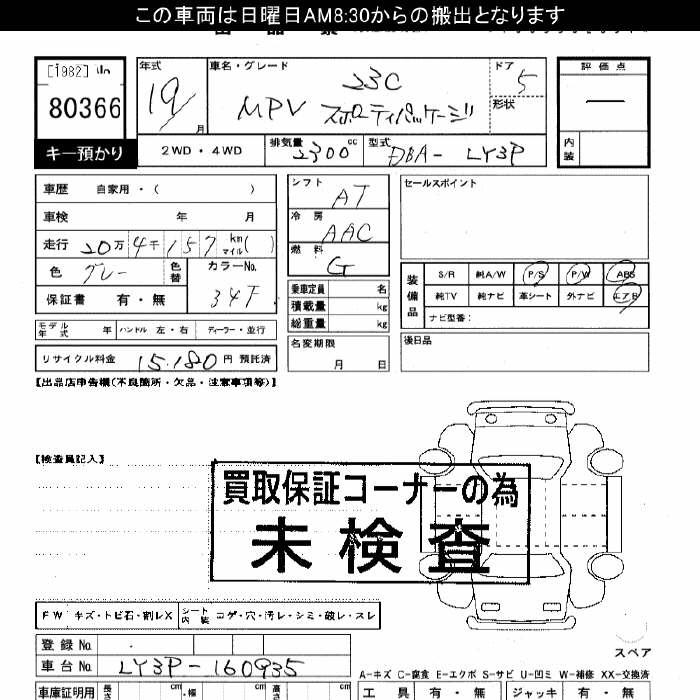 この車両は日曜日AM8:30からの搬出となります
[1982]
80366
キー預かり
年式
19
月
車名・グレード
23C
MPV スポーティパッケージ
ドア
5
形状
評価点
—
内装
2WD・4WD
排気量
2300
cc
型式
DBA- LY3P
車歴 自家用・( )
車検 年 月
走行 20万 4千 157 km マイル( )
色 グレー
色替
カラーNo.
34F
保証書 有・無
シフト
AT
冷房
AAC
燃料
G
乗車定員 名
積載量 kg
総重量 kg
名変期限
月 日
セールスポイント
装備品
S/R 純A/W P/S P/W ABS
純TV 純ナビ 革シート 外ナビ エアB
ナビ型番:
後日品
モデル年式 年 ハンドル 左・右 ディーラー・並行
リサイクル料金 15,180 円 預託済
【出品店申告欄(不良箇所・欠品・注意事項等)】
【検査員記入】
買取保証コーナーの為
未検査
FW キズ・トビ石・割レX
シート内装 コゲ・穴・汚レ・シミ・破レ・スレ
登録No.
車台No. LY3P-160935
スペア
A-キズ C-腐食 E-エクボ S-サビ U-凹ミ W-補修 XX-交換済
車庫証明用 長さ cm 幅 cm 高さ cm
工具 有・無 ジャッキ 有・無